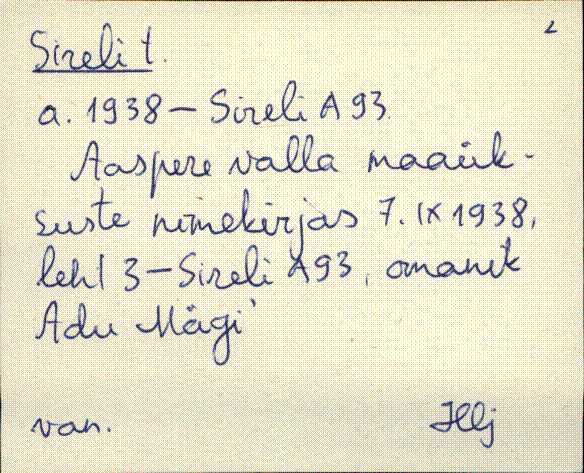 2
Sireli t.
a. 1938 – Sireli A 93.
Aaspere valla maaük-
suste nimekirjas 7. IX 1938,
leht 3 – Sireli A 93, omanik
Adu Mägi
van. Hlj